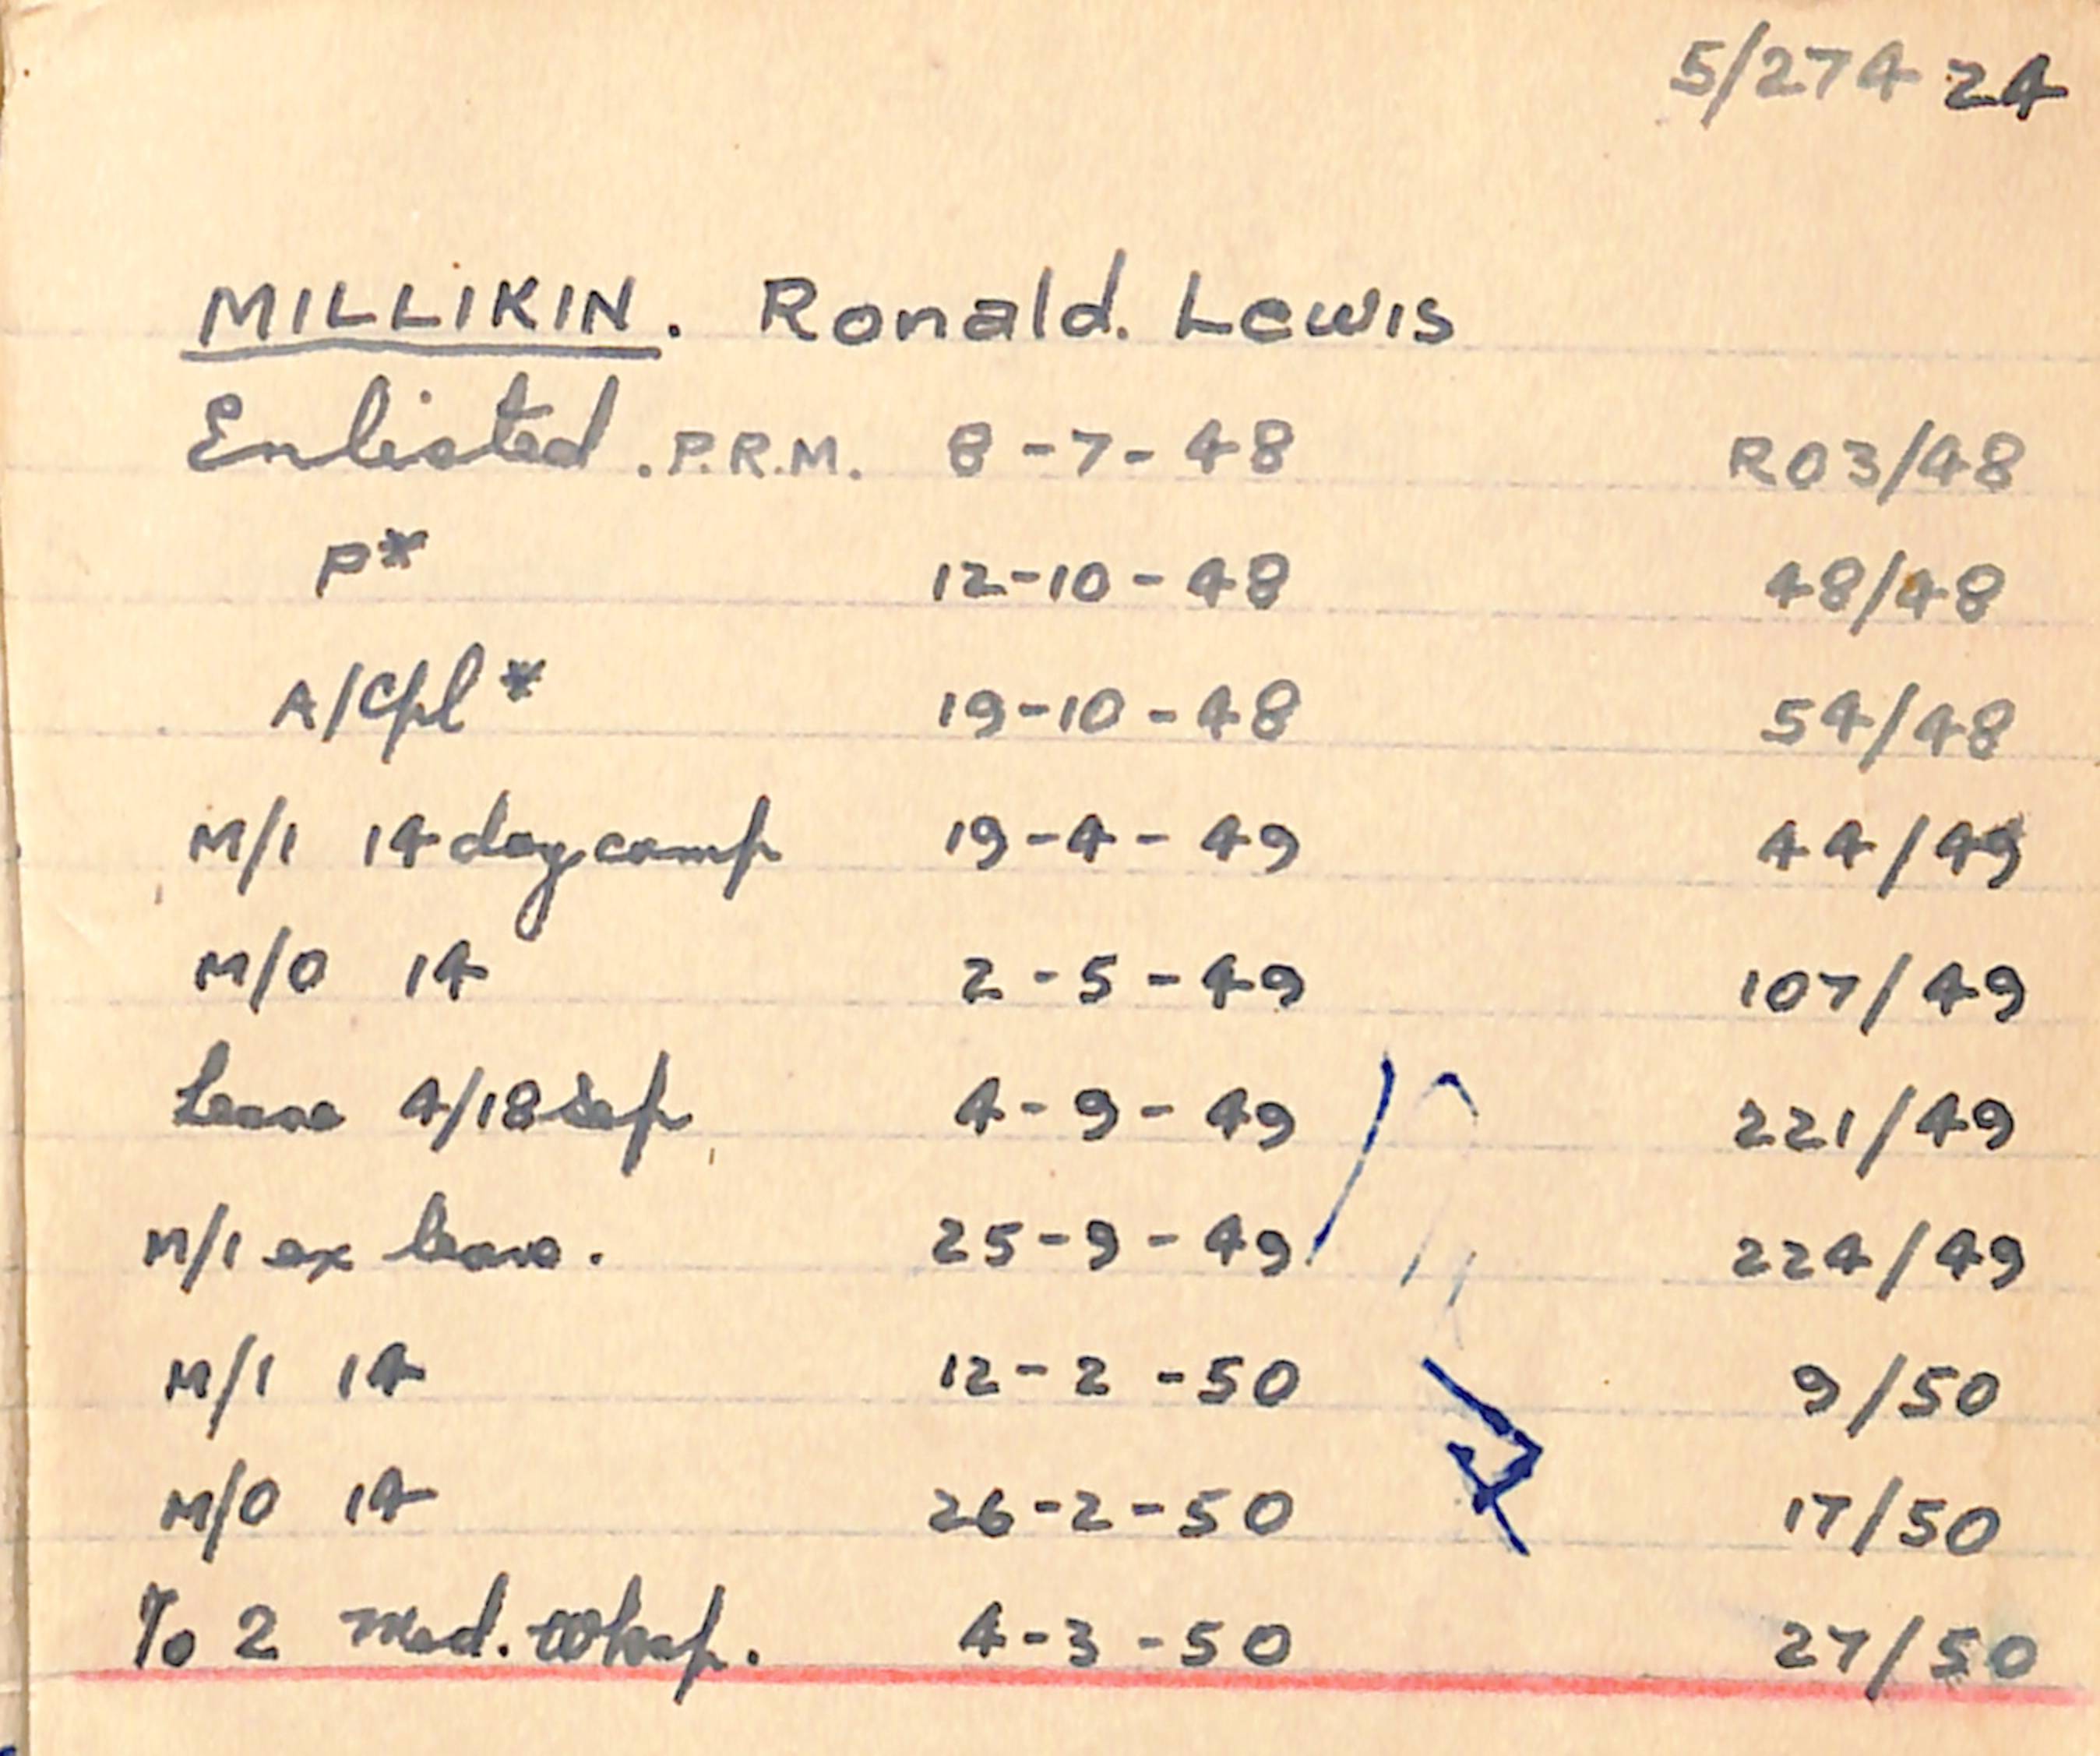 5/274 24
MILLIKIN. Ronald. Lewis
Enlisted. P.R.M. 8-7-48 R03/48
P* 12-10-48 48/48
A/Cpl* 19-10-48 54/48
M/1 14 day camp 19-4-49 44/49
M/O 14 2-5-49 107/49
Leave 4/18 Sep 4-9-49 221/49
M/1 ex leave. 25-9-49 224/49
M/1 14 12-2-50 9/50
M/O 14 26-2-50 17/50
To 2 Med. Wksp. 4-3-50 27/50